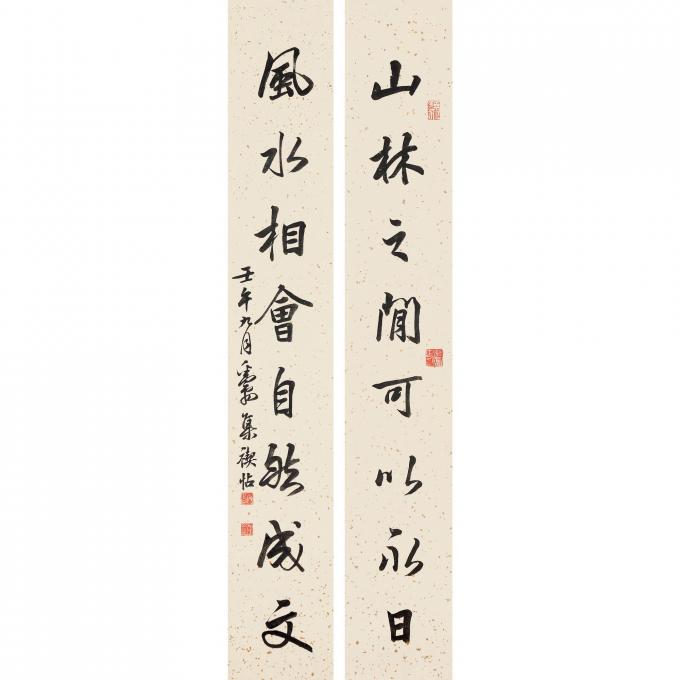 山林之閒可以永日
風水相會自然成文
壬午九月
集禊帖